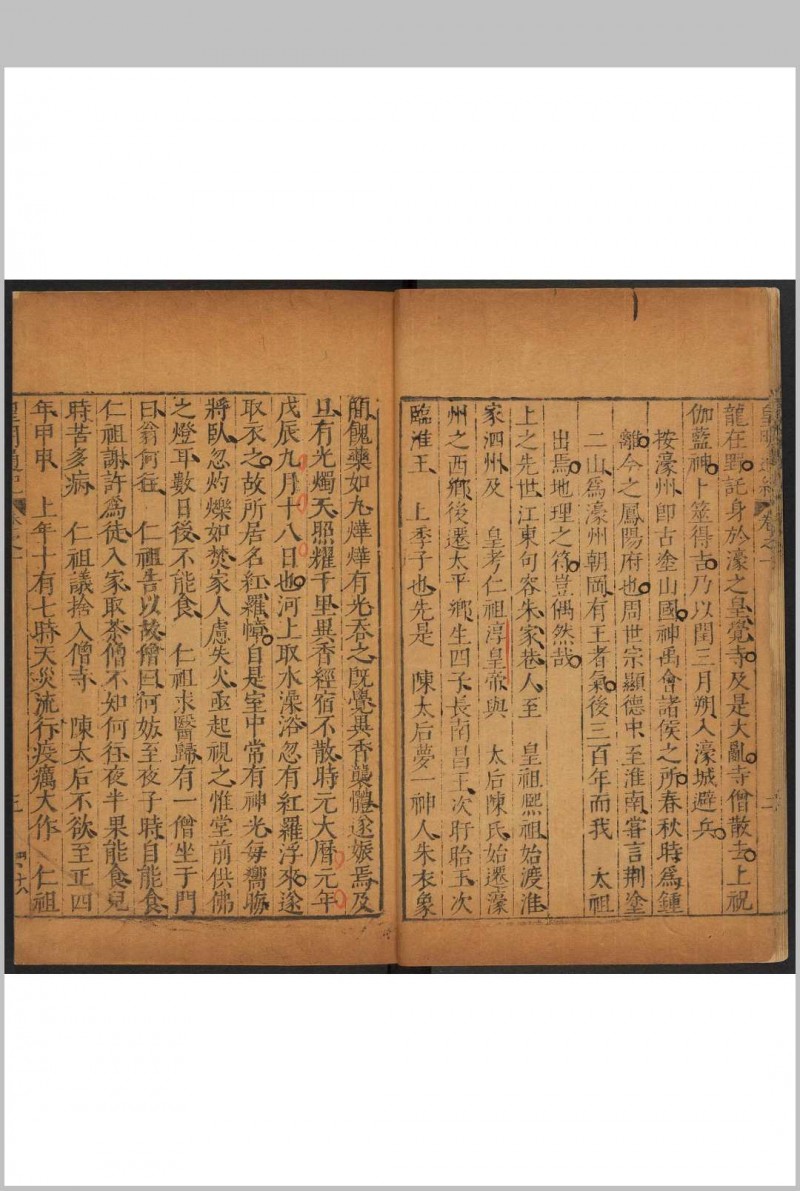 龍在野託身於濠之皇覺寺及是大亂寺僧散去上祝
伽藍神卜筮得吉乃以閏三月朔入濠城避兵
按濠州卽古塗山國神禹會諸侯之所春秋時爲鍾
離今之鳳陽府也周世宗顯德中至淮南嘗言荆塗
二山爲濠州朝岡有王者氣後三百年而我 太祖
出焉地理之符豈偶然哉
上之先世江東句容朱家巷人至 皇祖熙祖始渡淮
家泗州及 皇考仁祖淳皇帝與 太后陳氏始遷濠
州之西鄉後遷太平鄉生四子長南昌王次盱眙王次
臨淮王 上季子也先是 陳太后夢一神人朱衣象
簡餽藥如丸燁燁有光吞之既覺異香襲體遂娠焉及
旦有光燭天照耀千里異香經宿不散時元大曆元年
戊辰九月十八日也河上取水澡浴忽有紅羅浮來遂
取衣之故所居名紅羅幛自是室中常有神光每嚮晦
將臥忽灼爍如焚家人慮失火亟起視之惟堂前供佛
之燈耳數日後不能食 仁祖求醫歸有一僧坐于門
曰翁何往 仁祖告以故僧曰何妨至夜子時自能食
仁祖謝許爲徒入家取茶僧不知何徃夜半果能食兒
時苦多病 仁祖議捨入僧寺 陳太后不欲至正四
年甲申 上年十有七時天災流行疫癘大作 仁祖